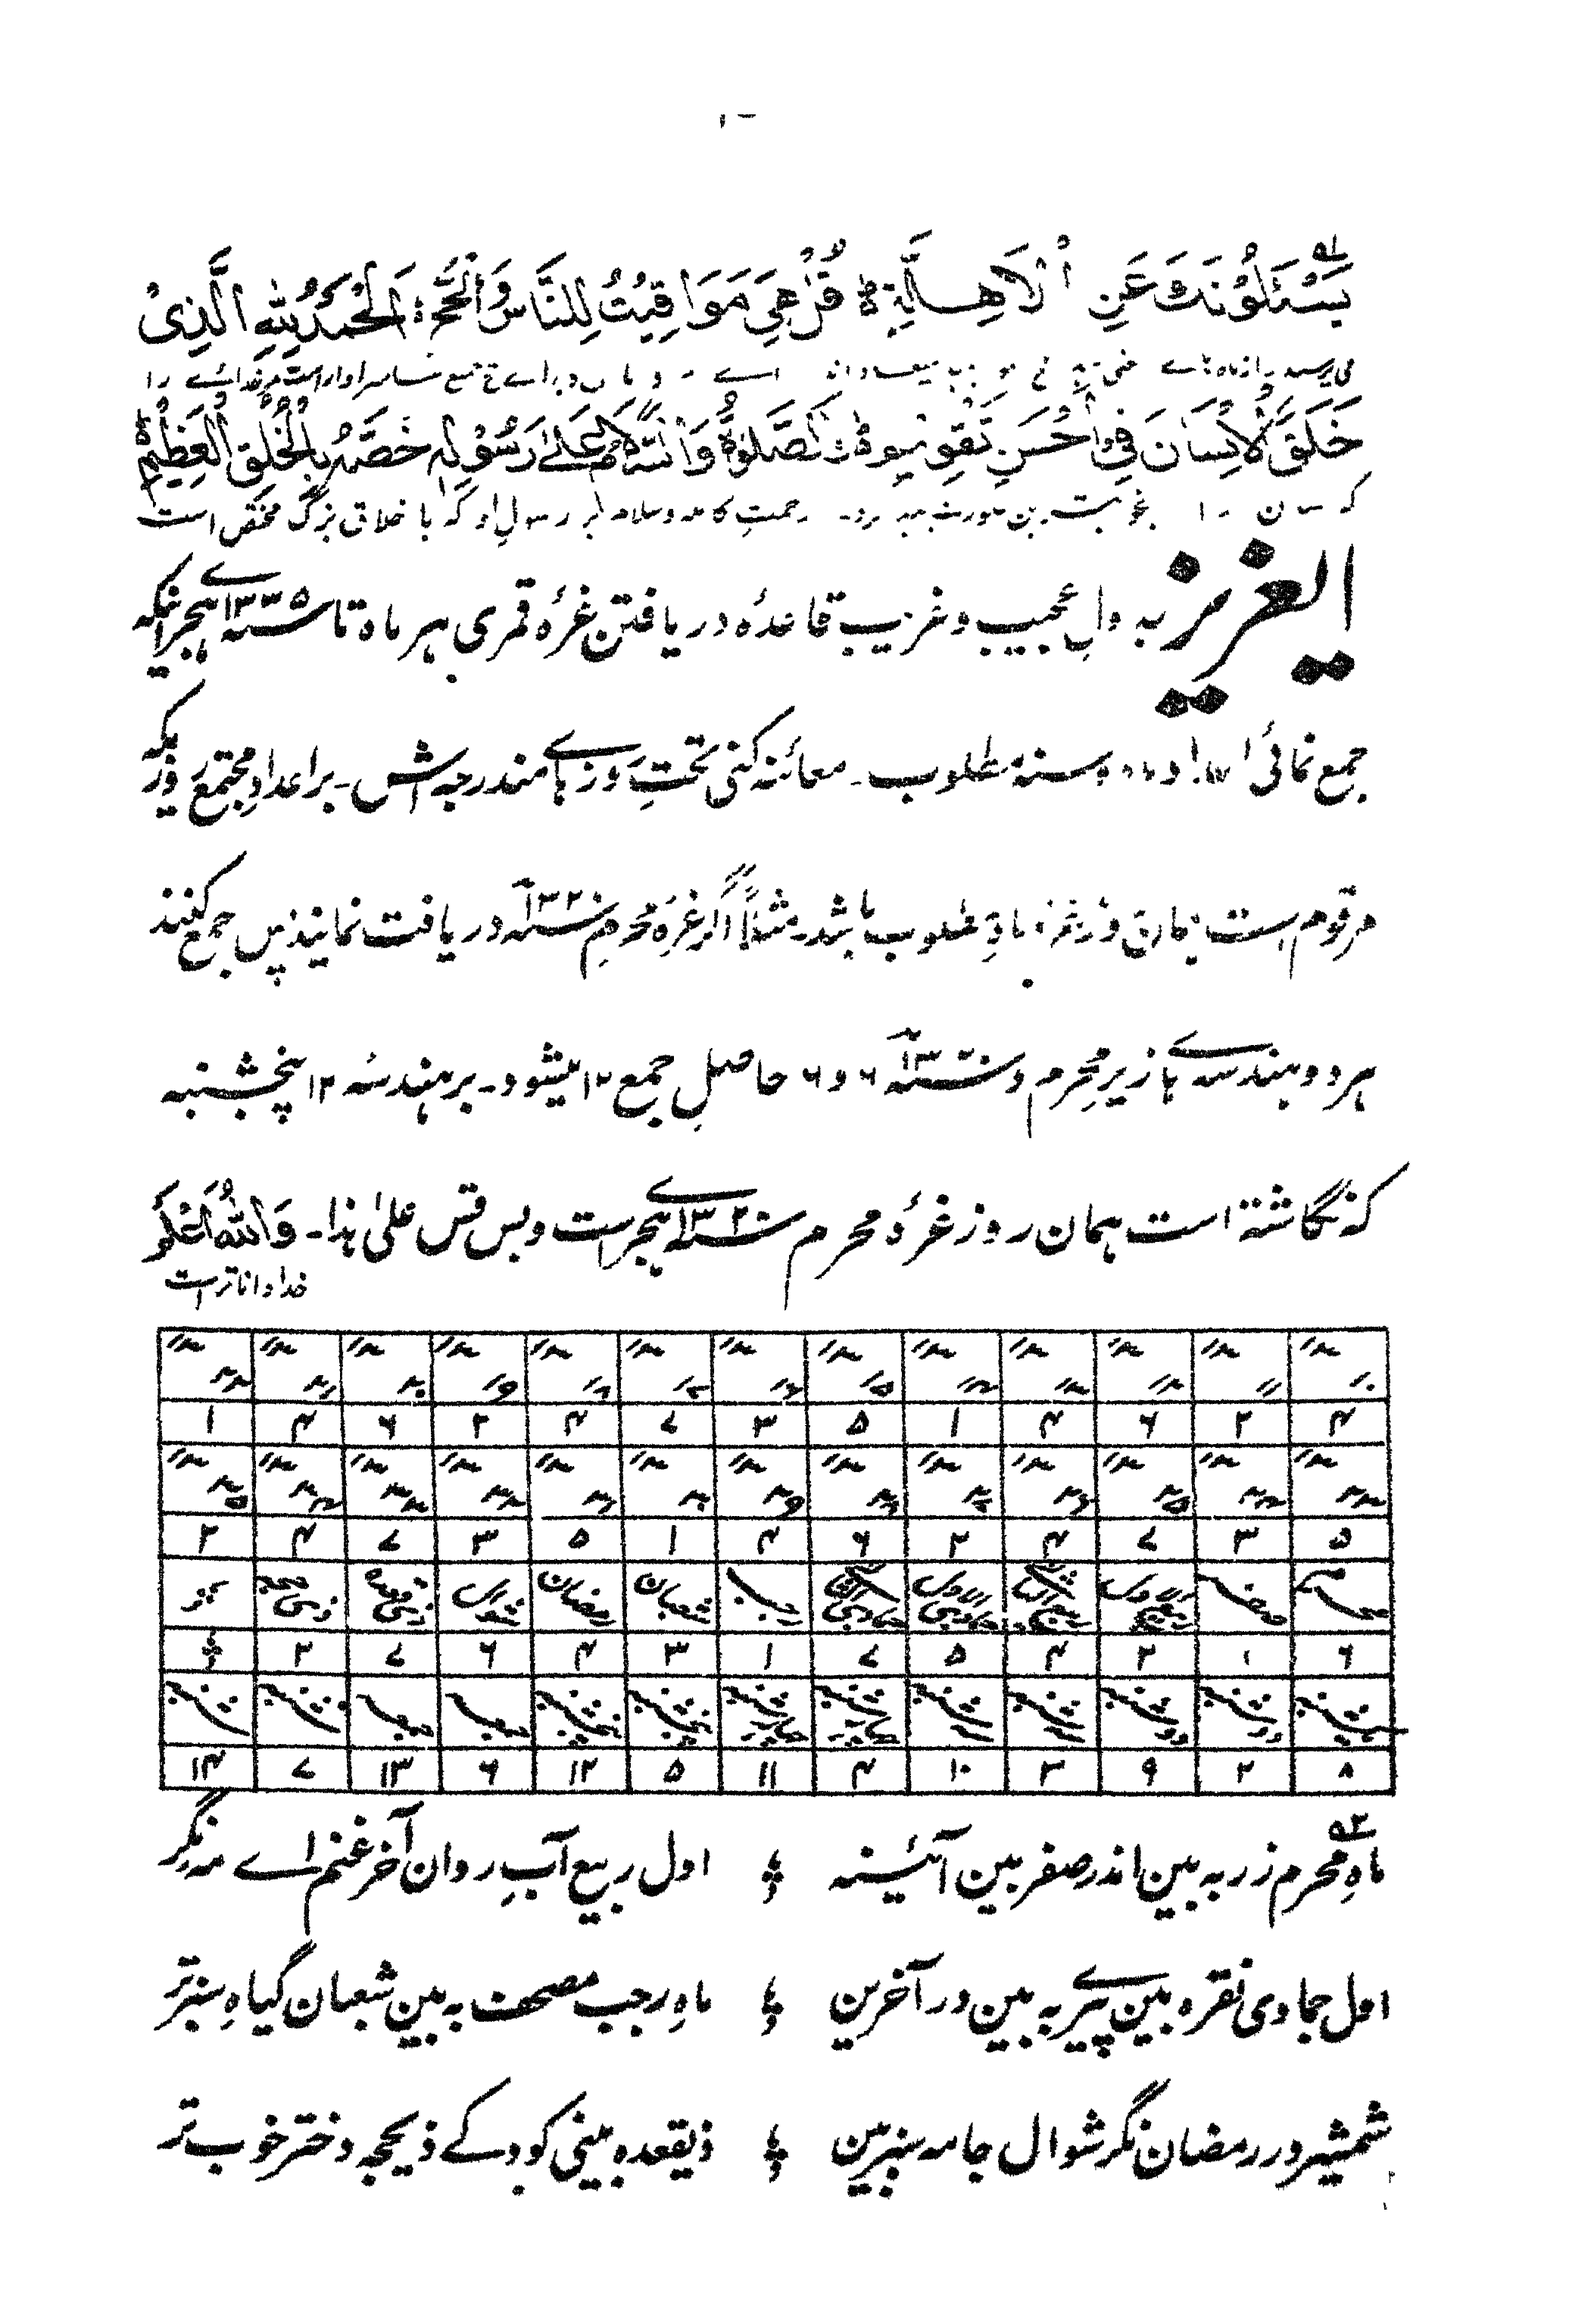 يَسْئَلُوْنَكَ عَنِ الْاَهِلَّةِ ط قُلْ هِيَ مَوَاقِيْتُ لِلنَّاسِ وَالْحَجِّ ؛ اَلْحَمْدُ لِلّٰهِ الَّذِیْ
خَلَقَ الْاِنْسَانَ فِیْ اَحْسَنِ تَقْوِیْمٍ ط وَالصَّلٰوةُ وَالسَّلَامُ عَلٰے رَسُوْلِهٖ خَصَّهٗ بِالْخُلُقِ الْعَظِیْمِ ط
رحمتِ کاملہ وسلام بر رسولِ او کہ با خلاق بزرگ مختص است
العزیز جدولِ عجیب و غریب قاعدہ دریافتن غرۂ قمری ہر ماہ تا سنہ ۱۳۳۵ ہجری اینکہ
جمع نمائی اعداد ماہ وسنۂ مطلوب ۔ معائنہ کنی تحتِ روزہائے مندرجہ اش ۔ بر اعدادِ مجتمع روزیکہ
مرقوم است ہمان روز غرہ ماہِ مطلوب باشد ۔ مثلاً اگر غرہ محرم سنہ ۱۳۲۰ دریافت نمایند پس جمع کنند
ہر دو ہندسہ ہائے زیر محرم و سنہ ۱۳۲۰ ۶ و ۶ حاصلِ جمع ۱۲ میشود ۔ بر ہندسہ ۱۲ پنجشنبہ
کہ نگاشتہ است ہمان روز غرۂ محرم سنہ ۱۳۲۰ ہجریست و بس قس علیٰ ہذا ۔ وَاللهُ اَعْلَمُ
خدا داناتر است
۱۳۱۰ ۱۳۱۱ ۱۳۱۲ ۱۳۱۳ ۱۳۱۴ ۱۳۱۵ ۱۳۱۶ ۱۳۱۷ ۱۳۱۸ ۱۳۱۹ ۱۳۲۰ ۱۳۲۱ ۱۳۲۲
۴ ۲ ۶ ۴ ۱ ۵ ۳ ۷ ۴ ۲ ۶ ۴ ۱
۱۳۲۳ ۱۳۲۴ ۱۳۲۵ ۱۳۲۶ ۱۳۲۷ ۱۳۲۸ ۱۳۲۹ ۱۳۳۰ ۱۳۳۱ ۱۳۳۲ ۱۳۳۳ ۱۳۳۴ ۱۳۳۵
۵ ۳ ۷ ۴ ۲ ۶ ۴ ۱ ۵ ۳ ۷ ۴ ۲
محرم صفر ربیع الاول ربیع الثانی جمادی الاول جمادی الثانی رجب شعبان رمضان شوال ذی قعدہ ذی حجہ
۶ ۱ ۲ ۴ ۵ ۷ ۱ ۳ ۴ ۶ ۷ ۲
یکشنبہ دوشنبہ دوشنبہ سہ شنبہ سہ شنبہ چہارشنبہ چہارشنبہ پنجشنبہ پنجشنبہ جمعہ جمعہ شنبہ شنبہ
۸ ۲ ۹ ۳ ۱۰ ۴ ۱۱ ۵ ۱۲ ۶ ۱۳ ۷ ۱۴
ماہِ محرم زر بہ بین اندر صفر بین آئینہ ؛ اول ربیع آبِ روان آخر غنم اے مہ نگر
اول جمادی نقرہ بین پیرے بہ بین در آخرین ؛ ماہِ رجب مصحف بہ بین شعبان گیاہِ سبز تر
شمشیر در رمضان نگر شوال جامہ سبز بین ؛ ذیقعدہ بینی کودکے ذیحجہ دختر خوب تر